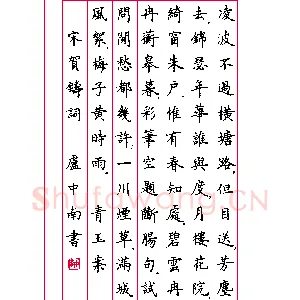 凌波不過橫塘路、但目送、芳塵
去、錦瑟年華誰與度、月樓花院
綺窗朱戶、惟有春知處、碧雲冉
冉蘅皋暮、彩筆空題斷腸句、試
問閒愁都幾許、一川煙草、滿城
風絮、梅子黃時雨、 青玉案
宋賀鑄詞 盧中南書
Shufawang.CN